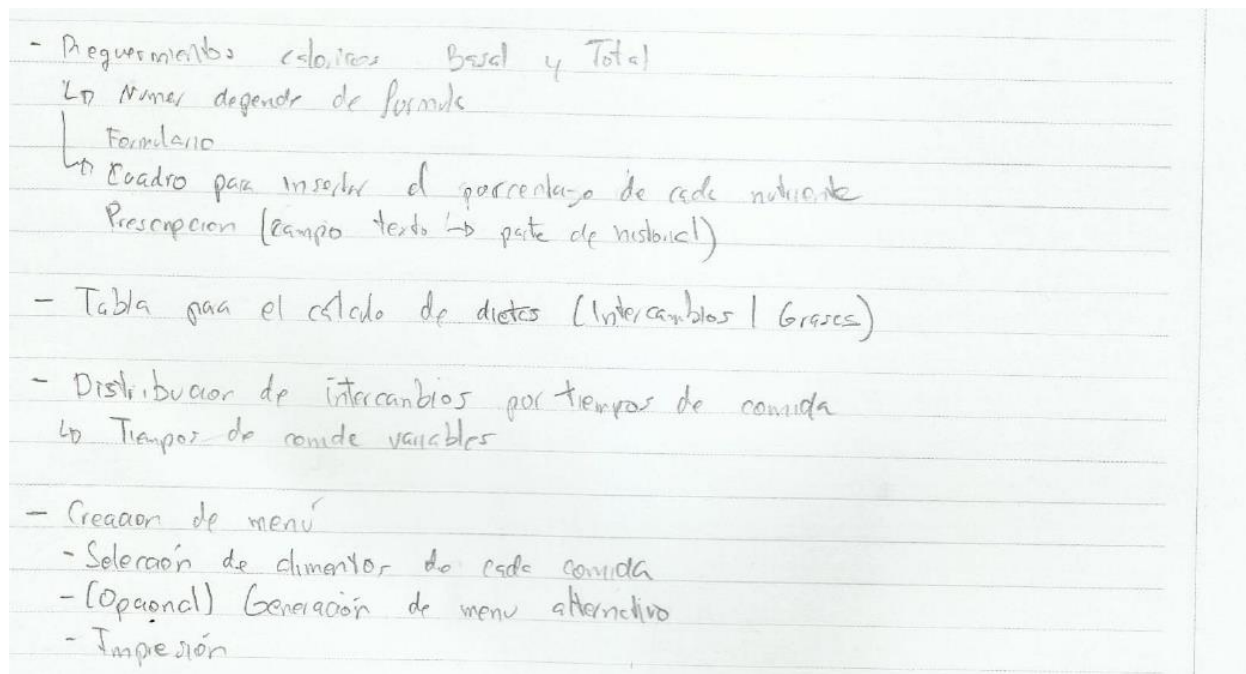 - Requermientos caloricos Basal y Total
↳ Numer depende de formula
Formulario
↳ Cuadro para insertar el porcentaje de cada nutriente
Prescripcion (campo texto ↳ parte de historial)
- Tabla para el calculo de dietas (Intercambios | Grases)
- Distribucion de intercambios por tiempos de comida
↳ Tiempos de comide variables
- Creacion de menú
- Selección de alimentos de cada comida
- (Opcional) Generación de menu alternativo
- Impresión